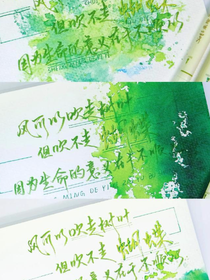 风可以吹走树叶
但吹不走蝴蝶
因为生命的意义在于不顺从
风可以吹走树叶
但吹不走蝴蝶
因为生命的意义在于不顺
MING DE YI
风可以吹走树叶
但吹不走蝴蝶
意义在于不顺从